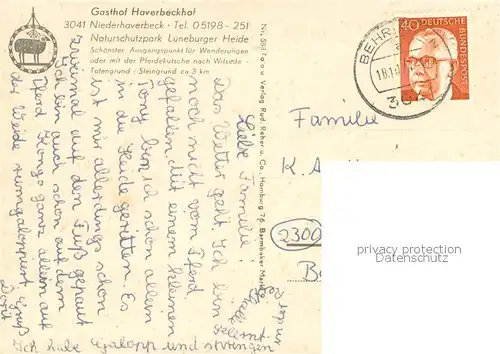 Gasthof Haverbeckhof
3041 Niederhaverbeck · Tel. 05198 - 251
Naturschutzpark Lüneburger Heide
Schönster Ausgangspunkt für Wanderungen
oder mit der Pferdekutsche nach Wilsede -
Totengrund / Steingrund ca. 3 km
Liebe Familie!
Das Wetter geht. Ich bin
noch nicht vom Pferd
gefallen. Mit einem kleinen
Pony bin ich schon allein
in die Heide geritten. Es
ist mir allerdings schon
zweimal auf den Fuß getauft
Ich bin auch schon auf dem
Pferd Kongo ganz allein auf
der Weide rumgaloppiert. Gruß
Dorit
Ich habe Galopp und springen
gelernt.
Foto u. Verlag Rud. Reher u. Co., Hamburg 76, Barmbeker Markt
BEHRI
18.10
304
40
DEUTSCHE
BUNDESPOST
Familie
K.
2300
privacy protected
Datenschutz